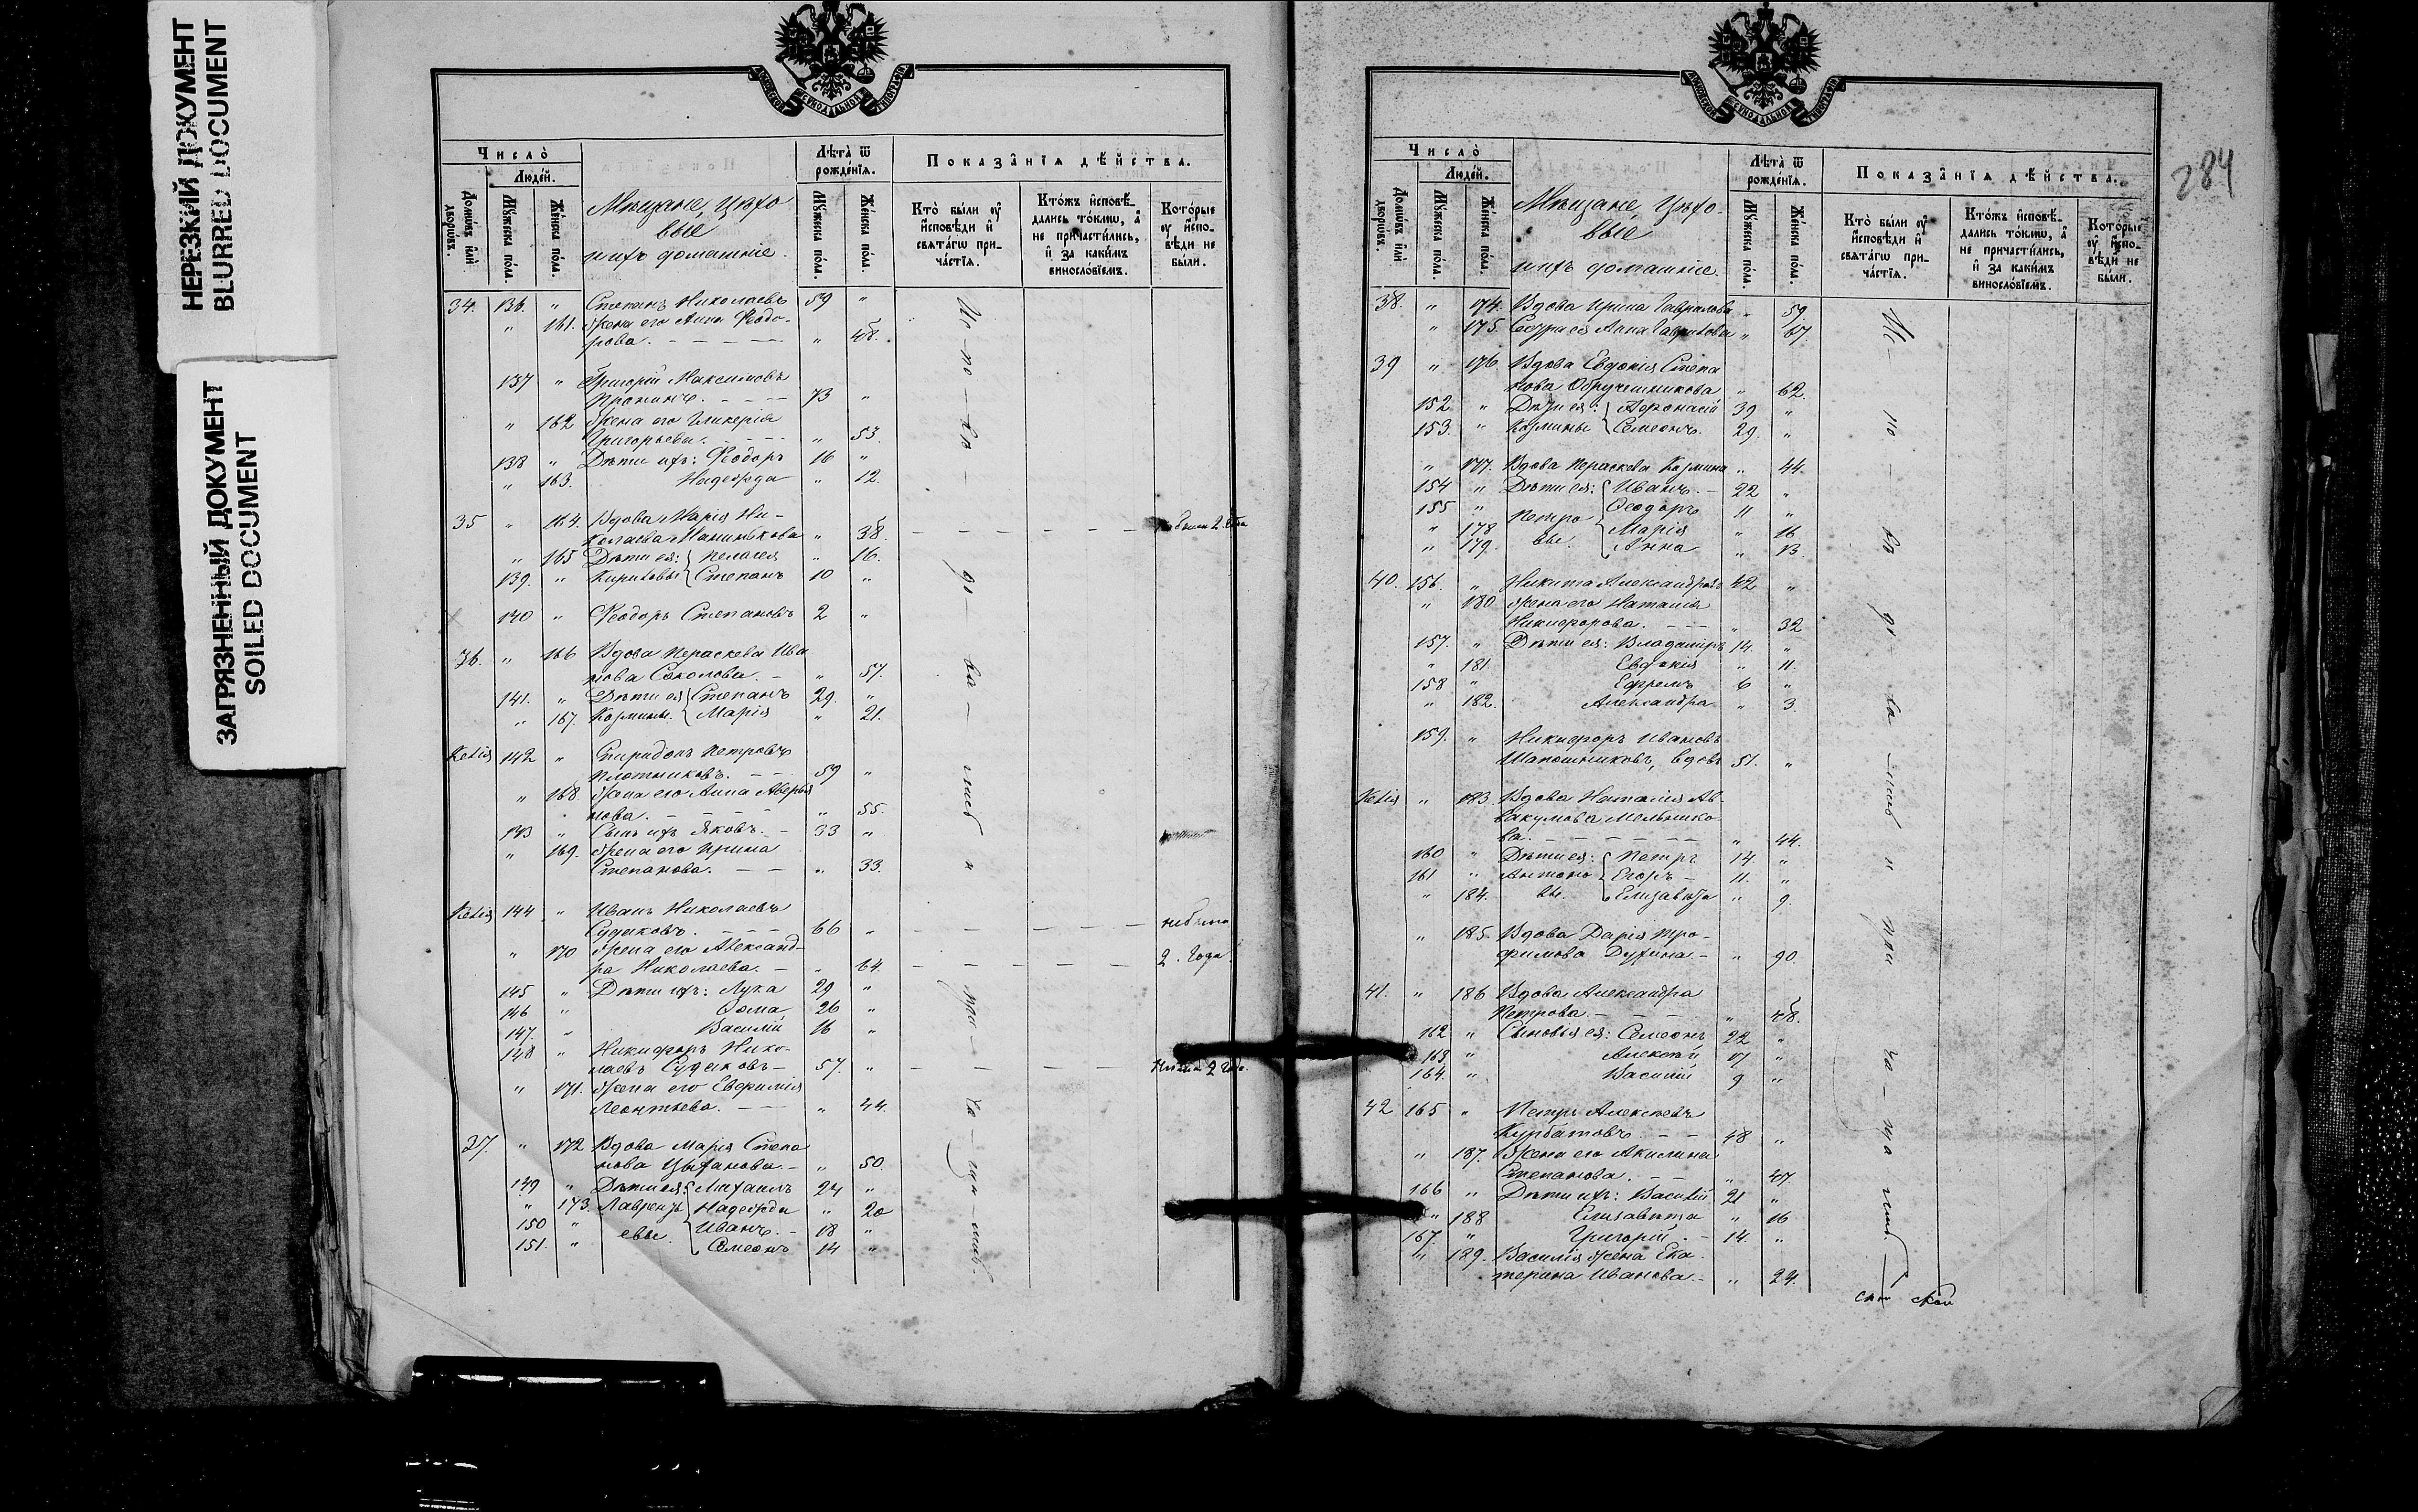 НЕРЕЗКИЙ ДОКУМЕНТ
BLURRED DOCUMENT
ЗАГРЯЗНЕННЫЙ ДОКУМЕНТ
SOILED DOCUMENT
МОСКОВСКОЙ СѴНОДАЛЬНОЙ ТИПОГРАФІИ
Число̀
Людей.
Домѡвъ или дворѡвъ.
Мꙋжеска пола.
Женска пола.
Мѣщане, цѣхо
вые
и ихъ домашніе.
Лѣта̀ ѿ рожденїѧ.
Мꙋжеска пола.
Женска пола.
Показа̑нїѧ дѣйства.
Кто̀ были оу҆ исповѣди и свѧтагѡ причастїѧ.
Ктожъ исповѣдались токмѡ, а не причастились, и за какимъ винословїемъ.
Которые оу҆ исповѣди не были.
34. 136. " Степанъ Николаевъ 59 "
" 161. Жена его Анна Ѳеодо-
рова. " 48.
137 " Григорій Максимовъ
Пронинъ. 73 "
" 162 Жена его Гликерія
Григорьева. " 53.
138 " Дѣти ихъ: Ѳеодоръ 16 "
" 163. Надежда " 12.
35 " 164. Вдова Марія Ни-
колаева " 38.
" 165 Дѣти ея: Пелагея " 16.
139. " Кириловы Степанъ 10 "
140 " Ѳеодоръ Степановъ 2 "
36. " 166 Вдова Параскева Ива
нова Соколова. " 57.
141. " Дѣти ея Степанъ 29. "
" 167. Козмины. Марія " 21.
Келія 142 " Спиридонъ Петровъ
Плотниковъ. 59 "
" 168. Жена его Анна Аверья
нова. " 55.
143 " Сынъ ихъ Яковъ. 33 "
" 169. Жена его Ирина
Степанова. " 33.
Келія 144 " Иванъ Николаевъ
Судаковъ. 66 " небыли
" 170 Жена его Александ-
ра Николаева. " 64. 2. года
145 " Дѣти ихъ: Лука 29 "
146 " Ѳома 26 "
147. " Василій 16 "
148 " Никифоръ Нико-
лаевъ Судаковъ 57. "
" 171. Жена его Евфимія
Леонтьева. " 44.
37. " 172 Вдова Марія Степа
нова Цыганова. " 50.
149 " Дѣти ея: Михаилъ 24 "
" 173. Лаврентьевы. Надежда " 20
150 " Иванъ. 18 "
151. " Семеонъ 14 "
Ис-по-вѣ-до-ва-лись и при-ча-сти-лись.
284
МОСКОВСКОЙ СѴНОДАЛЬНОЙ ТИПОГРАФІИ
Число̀
Людей.
Домѡвъ или дворѡвъ.
Мꙋжеска пола.
Женска пола.
Мѣщане, цѣхо-
вые
и ихъ домашніе.
Лѣта̀ ѿ рожденїѧ.
Мꙋжеска пола.
Женска пола.
Показа̑нїѧ дѣйства.
Кто̀ были оу҆ исповѣди и свѧтагѡ причастїѧ.
Ктожъ исповѣдались токмѡ, а не причастились, и за какимъ винословїемъ.
Которые оу҆ исповѣди не были.
38. " 174. Вдова Ирина Гаврилова " 59.
" 175. Сестра ея Анна Гаврилова " 67.
39 " 176. Вдова Евдокія Степа
нова Обручешникова " 62.
152 " Дѣти ея: Афонасій 39 "
153. " Козмины Семеонъ. 29. "
" 177. Вдова Параскева Козмина " 44.
154 " Дѣти ея: Иванъ. 22 "
155 " Петро Ѳеодоръ 11 "
" 178 вы. Марія " 16
" 179. Анна " 13.
40. 156. " Никита Александровъ 42 "
" 180 Жена его Наталія
Никифорова. " 32
157. " Дѣти ея: Владимиръ 14. "
" 181. Евдокія " 11.
158 " Ефремъ 6 "
" 182. Александра " 3.
159. " Никифоръ Ивановъ
Шапошниковъ, вдовъ 51. "
Келія " 183. Вдова Наталія Ав-
вакумова Мельнико
ва. " 44.
160 " Дѣти ея: Петръ 14. "
161 " Антоно Егоръ 11. "
" 184. вы. Елизавета " 9.
" 185. Вдова Дарія Тро-
фимова " 90.
41. " 186 Вдова Александра
Петрова. " 48.
162 " Сыновья ея: Семеонъ 22 "
163 " Алексѣй 17 "
164. " Василій 9 "
42 165 " Петръ Алексѣевъ
Курбатовъ. 48 "
" 187. Жена его Акилина
Степанова. " 47
166 " Дѣти ихъ: Василій 21 "
" 188 Елизавета " 16
167. " Григорій. 14. "
" 189. Василія жена Ека
терина Иванова. " 24.
Ис-по-вѣ-до-ва-лись и при-ча-